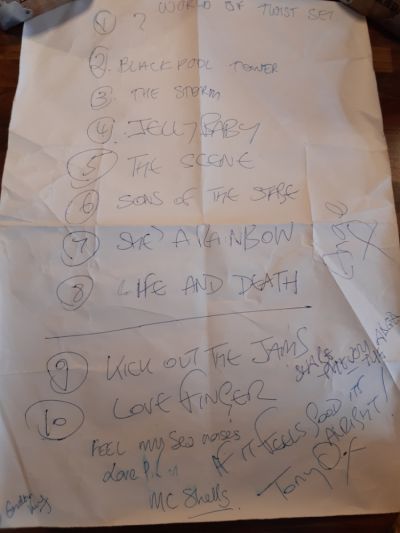 WORLD OF TWIST SET
① ?
② BLACKPOOL TOWER
③ THE STORM
④ JELLY BABY
⑤ THE SCENE
⑥ SONS OF THE STAGE
⑦ SHE'S A RAINBOW
⑧ LIFE AND DEATH
⑨ KICK OUT THE JAMS
⑩ LOVE FINGER
FEEL MY SEO NOISES
Love
MC Shells.
IF IT FEELS GOOD IT
ALRIGHT!
Tony O. X